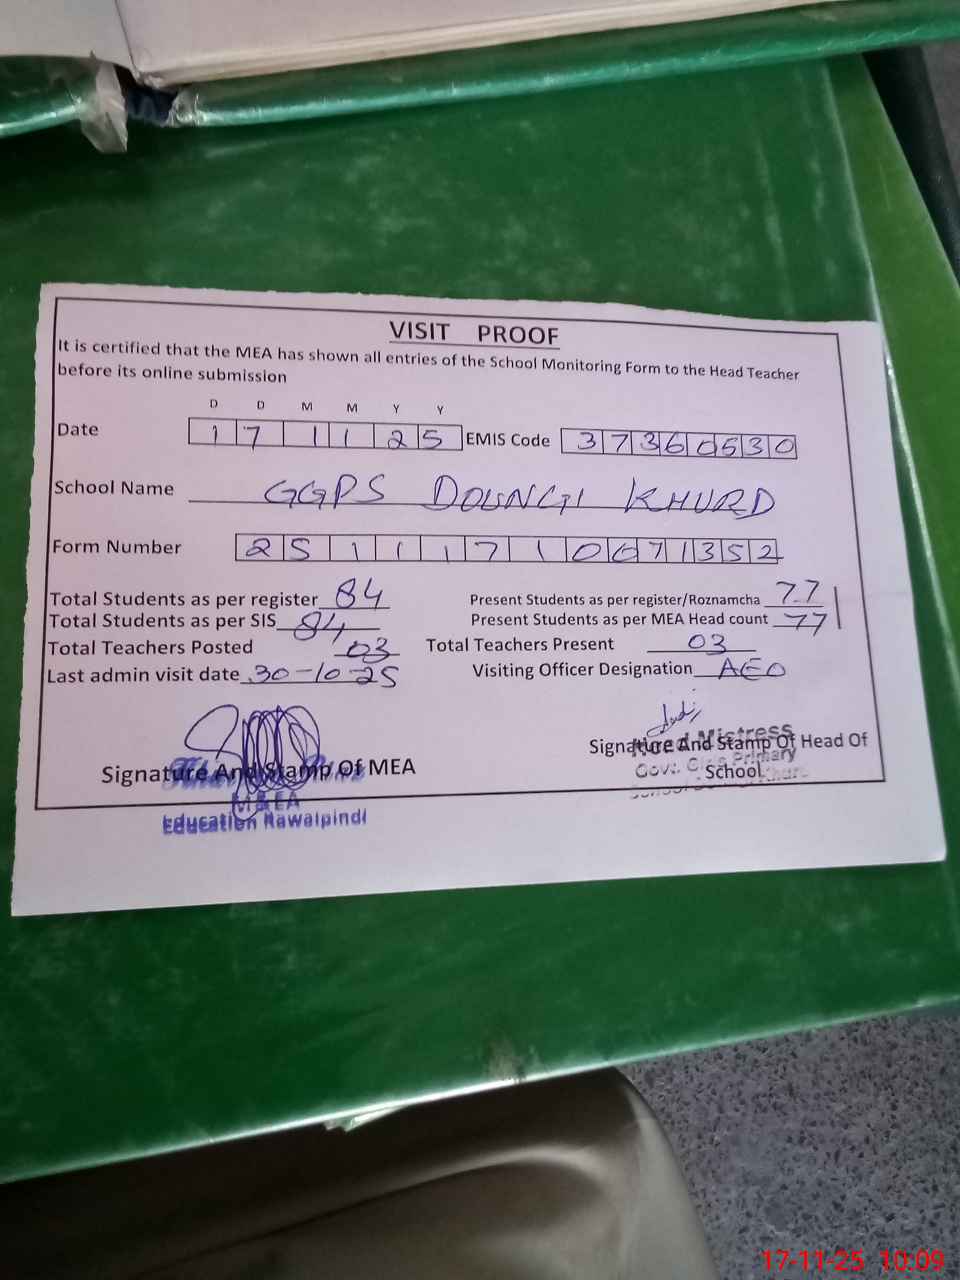 VISIT PROOF
It is certified that the MEA has shown all entries of the School Monitoring Form to the Head Teacher
before its online submission
D D M M Y Y
Date 1 7 1 1 2 5 EMIS Code 3 7 3 6 0 5 3 0
School Name GGPS DOUNGI KHURD
Form Number 2 5 1 1 1 7 1 0 0 7 1 3 5 2
Total Students as per register 84 Present Students as per register/Roznamcha 77
Total Students as per SIS 84 Present Students as per MEA Head count 77
Total Teachers Posted 03 Total Teachers Present 03
Last admin visit date 30-10-25 Visiting Officer Designation AEO
Signature And Stamp Of MEA
Signature And Stamp Of Head Of
School
Head Mistress
Govt. Girls Primary
School
M & EA
Education Rawalpindi
17-11-25 10:09